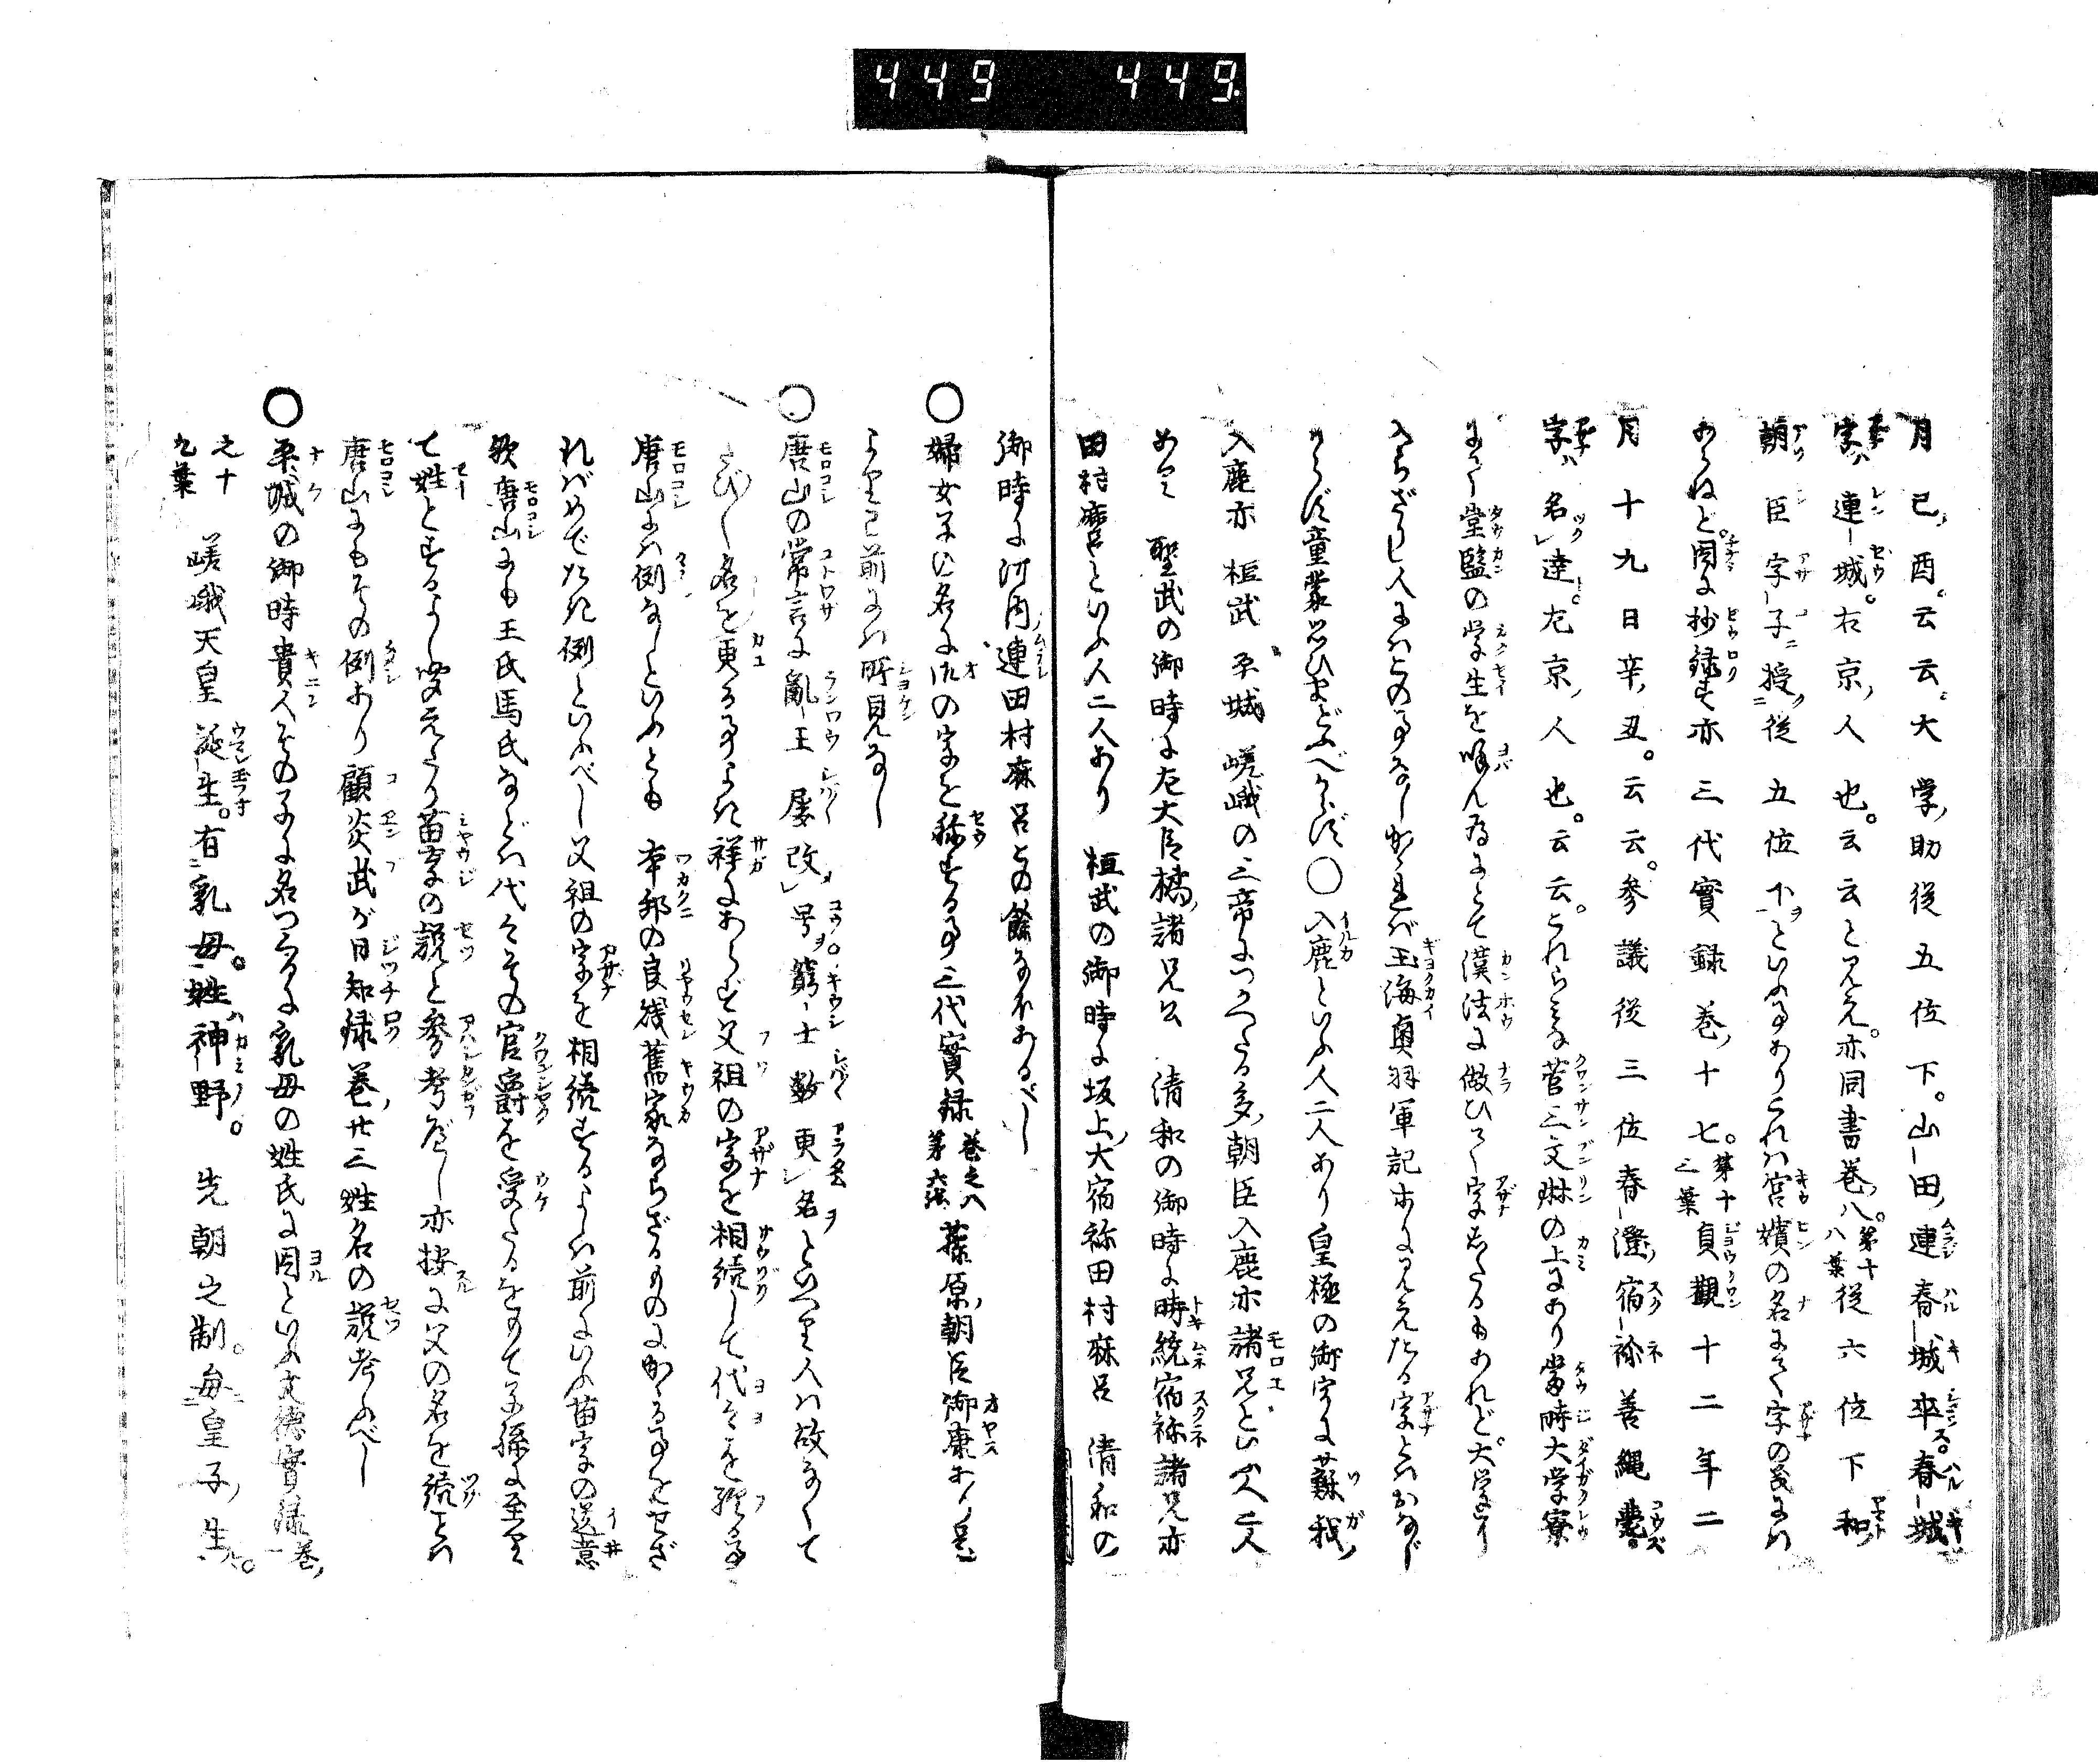 449 449.
月己酉。云云。大学助従五位下。山田連春城卒。春城
字ハ連城。右京人也。云云と見え。亦同書巻八。第十八葉従六位下和
朝臣字子授従五位下といふ事ありこれハ宮嬪の名にて字の義にハ
あらねど。因に抄録す亦三代實録巻十七。第十三葉貞觀十二年二
月十九日辛丑。云云。参議従三位春澄宿祢善縄薨。
字ハ名達。左京人也。云云。これらミな菅三文琳の上にあり當時大学寮
にて堂監の学生を喚ん為にとて漢法に倣ひて字したるもあれど。大学に
入らざりし人にハこの事なしかゝれバ玉海奥羽軍記ホに見えたる字とハおなじ
からず童蒙思ひまどふべからず○入鹿といふ人二人あり皇極の御宇に蘇我
入鹿亦桓武平城嵯峨の三帝につかへたる多朝臣入鹿亦諸兄といふ人二人
あり聖武の御時に左大臣橘諸兄公清和の御時に時統宿祢諸兄亦
田村麿といふ人二人あり桓武の御時に坂上大宿祢田村麻呂清和の
御時に河内連田村麻呂この餘なほあるべし
○婦女子に名に御の字を称する事三代實録巻之八第六張藤原朝臣御康
より已前にハ所見なし
○唐山の常言に亂王屡改号窮士数更名といへり人ハ故なくて
たび〳〵名を更る事よき祥にあらず父祖の字を相続して代々を歴る事
唐山にハ例なしといふとも本邦の良賤舊家ならざるものにかゝる事をせざ
ればめでたき例といふべし父祖の字を相続するよしハ前にいふ苗字の送意
歟唐山にも王氏馬氏などハ代々その官爵を受たるをもて子孫に至り
て姓とするよし聞えたり苗字の説と参考ずべし亦按に父の名を続ことハ
唐山にもその例あり顧炎武が日知録巻廿三姓名の説考ふべし
○平城の御時貴人その子に名つるに乳母の姓氏に因といふ文徳實録巻一
之十九葉嵯峨天皇誕生。有乳母。姓神野。先朝之制。毎皇子生。